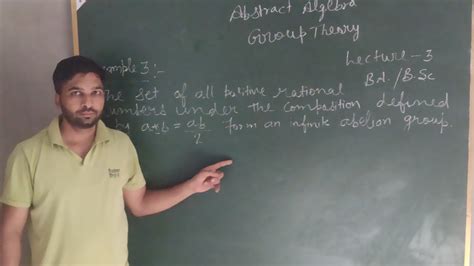 Abstract Algebra
Group Theory
Lecture - 3
Bd./B.Sc
ample 3:-
The set of all positive rational
numbers under the composition defined
by a*b = ab/2 form an infinite abelian group.